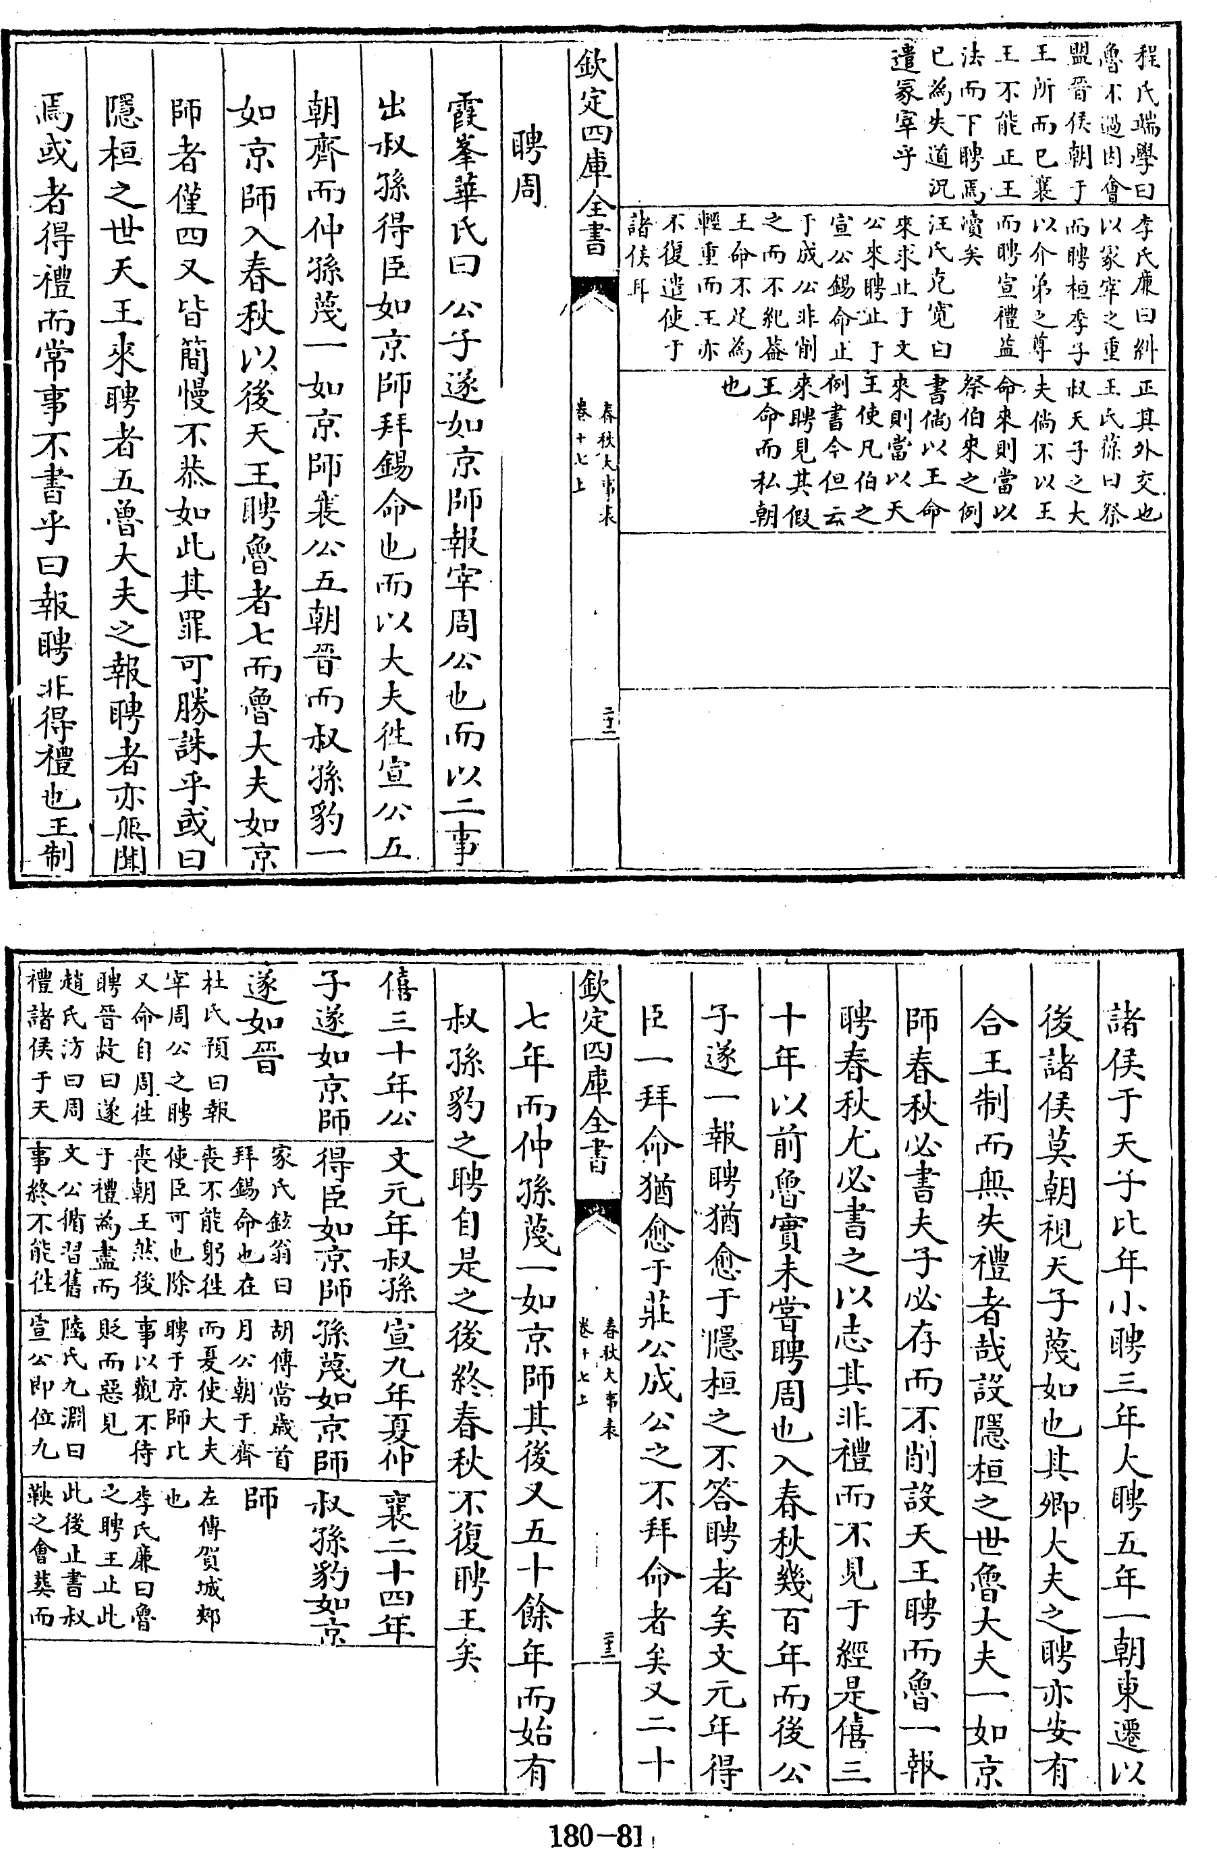 程氏端學曰
魯不過因會
盟晉侯朝于
王所而已襄
王不能正王
法而下聘焉
已為失道況
遣冢宰乎
李氏廉曰糾
以冢宰之重
而聘桓季子
以介弟之尊
而聘宣禮益
瀆矣
汪氏克寬曰
來求止于文
公來聘止于
宣公錫命止
于成公非削
之而不紀蓋
王命不足為
輕重而王亦
不復遣使于
諸侯耳
正其外交也
王氏葆曰祭
叔天子之大
夫倘不以王
命來則當以
祭伯來之例
書倘以王命
來則當以天
王使凡伯之
例書今但云
來聘見其假
王命而私朝
也
欽定四庫全書
春秋大事表
卷十七上
二十二
聘周
霞峯華氏曰公子遂如京師報宰周公也而以二事
出叔孫得臣如京師拜錫命也而以大夫徃宣公五
朝齊而仲孫蔑一如京師襄公五朝晉而叔孫豹一
如京師入春秋以後天王聘魯者七而魯大夫如京
師者僅四又皆簡慢不恭如此其罪可勝誅乎或曰
隱桓之世天王來聘者五魯大夫之報聘者亦無聞
焉或者得禮而常事不書乎曰報聘非得禮也王制
諸侯于天子比年小聘三年大聘五年一朝東遷以
後諸侯莫朝視天子蔑如也其卿大夫之聘亦安有
合王制而無失禮者哉設隱桓之世魯大夫一如京
師春秋必書夫子必存而不削設天王聘而魯一報
聘春秋尤必書之以志其非禮而不見于經是僖三
十年以前魯實未嘗聘周也入春秋幾百年而後公
子遂一報聘猶愈于隱桓之不答聘者矣文元年得
臣一拜命猶愈于莊公成公之不拜命者矣又二十
欽定四庫全書
春秋大事表
卷十七上
二十三
七年而仲孫蔑一如京師其後又五十餘年而始有
叔孫豹之聘自是之後終春秋不復聘王矣
僖三十年公
子遂如京師
遂如晉
杜氏預曰報
宰周公之聘
又命自周徃
聘晉故曰遂
趙氏汸曰周
禮諸侯于天
文元年叔孫
得臣如京師
家氏鉉翁曰
拜錫命也在
喪不能躬徃
使臣可也除
喪朝王然後
于禮為盡而
文公循習舊
事終不能徃
宣九年夏仲
孫蔑如京師
胡傳當歲首
月公朝于齊
而夏使大夫
聘于京師比
事以觀不待
貶而惡見
陸氏九淵曰
宣公即位九
襄二十四年
叔孫豹如京
師
左傳賀城郟
也
李氏廉曰魯
之聘王止此
此後止書叔
鞅之會葬而
180-81